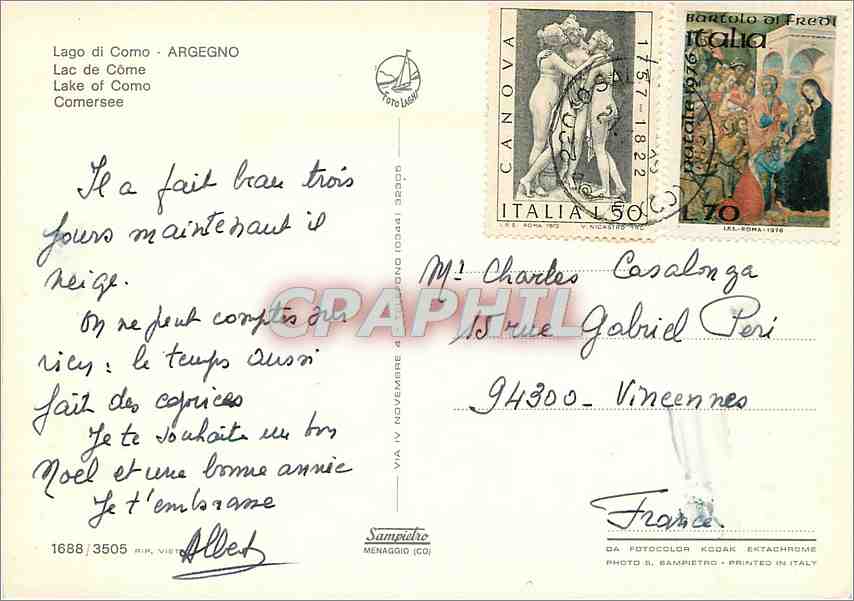 Lago di Como - ARGEGNO
Lac de Côme
Lake of Como
Comersee
FOTO LAGHI
CANOVA
1757-1822
ITALIA L.50
I.P.S. ROMA 1972 V. NICASTRO INC.
Bartolo di Fredi
italia
natale 1976
L.70
I.P.S.-ROMA-1976
Il a fait beau trois
jours maintenant il
neige.
On ne peut compter sur
rien : le temps aussi
fait des caprices
Je te souhaite un bon
Noel et une bonne année
Je t'embrasse
Albert
Mr Charles Casalonga
15 rue Gabriel Peri
94300 - Vincennes
France
CPAPHIL
VIA IV NOVEMBRE 4 TELEFONO (0344) 32305
1688/3505 RIP. VIET
Sampietro
MENAGGIO (CO)
DA FOTOCOLOR KODAK EKTACHROME
PHOTO S. SAMPIETRO - PRINTED IN ITALY